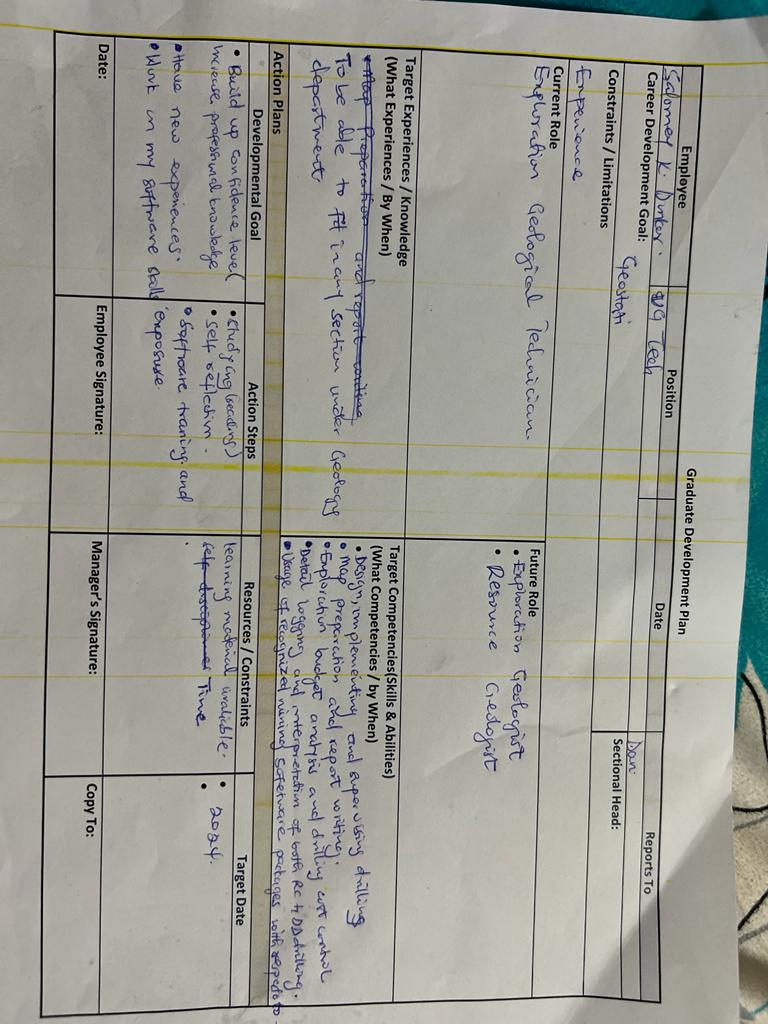 Graduate Development Plan
Employee
Position
Date
Reports To
Salomey K.
UG Tech
Dan
Career Development Goal:
Geostati
Sectional Head:
Constraints / Limitations
Experience
Current Role
Exploration Geological Technician.
Future Role
• Exploration Geologist
• Resource Geologist
Target Experiences / Knowledge
(What Experiences / By When)
• Map Preparation and report writing
To be able to fit in any section under Geology
department
Target Competencies(Skills & Abilities)
(What Competencies / by When)
• Design, implementing and supervising drilling
• Map preparation and report writing.
• Exploration budget analysis and drilling cost control
• Detail logging and interpretation of both RC & DD drilling.
• Usage of recognized mining safetware packages with respect to
Action Plans
Developmental Goal
Action Steps
Resources / Constraints
Target Date
• Build up confidence level
increase professional knowledge
• Have new experiences.
• Work on my software skills
• Studying (reading)
• Self reflection.
• Software traning and
exposure
learning material
self discipline Time
•
• 2024.
•
Date:
Employee Signature:
Manager's Signature:
Copy To: